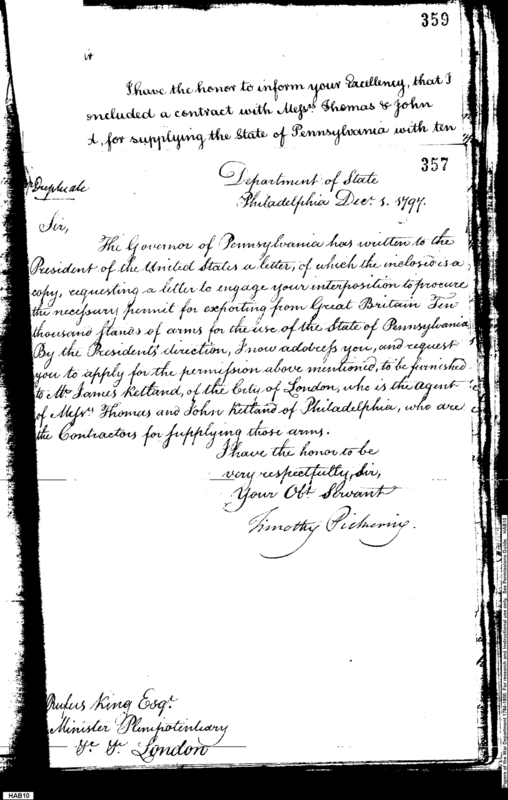 359
I have the honor to inform your Excellency, that I
oncluded a contract with Messrs Thomas & John
d, for supplying the State of Pennsylvania with ten
357
Department of State
Duplicate
Philadelphia Decr. 1. 1797.
Sir,
The Governor of Pennsylvania has written to the
President of the United States a letter, of which the inclosed is a
copy, requesting a letter to engage your interposition to procure
the necessary permit for exporting from Great Britain Ten
thousand stands of arms for the use of the State of Pennsylvania
By the Presidents' direction, I now address you, and request
you to apply for the permission above mentioned, to be furnished
to Mr. James Ketland, of the City of London, who is the agent
of Messrs Thomas and John Ketland of Philadelphia, who are
the Contractors for supplying those arms.
I have the honor to be
very respectfully, Sir,
Your Obt. Servant
Timothy Pickering.
Rufus King Esqr.
Minister Plenipotentiary
&c. &c. London
HAB10